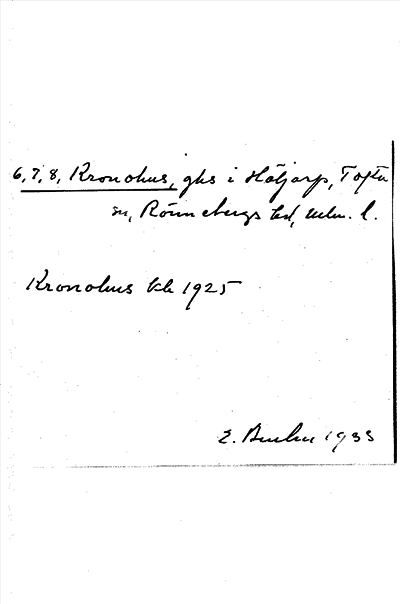 6, 7, 8, Kronohus, ghs i Häljarp, Tofta
sn, Rönnebergs hd, Mlm. l.
Kronohus kk 1925
E. 1933